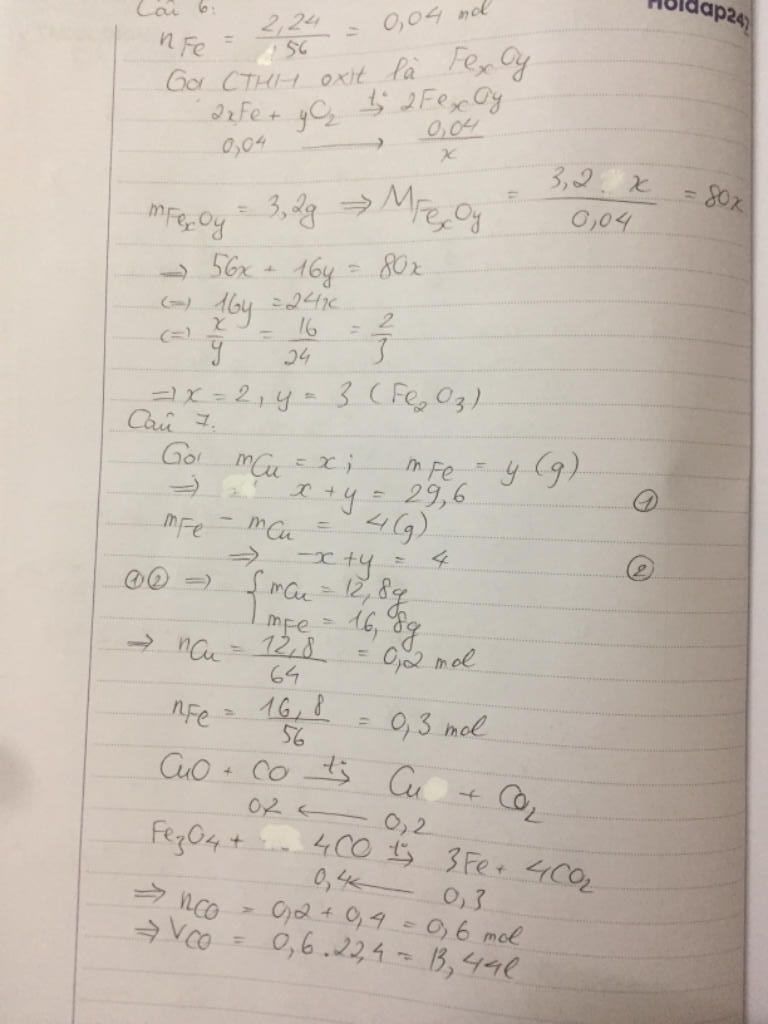 Câu 6:
Hoidap247
nFe = 2,24/56 = 0,04 mol
Gọi CTHH oxit là FexOy
2xFe + yO2 t°→ 2FexOy
0,04 → 0,04/x
mFexOy = 3,2g ⇒ MFexOy = 3,2 x/0,04 = 80x
⇒ 56x + 16y = 80x
⇔ 16y = 24x
⇔ x/y = 16/24 = 2/3
⇒ x = 2, y = 3 (Fe2O3)
Câu 7.
Gọi mCu = x; mFe = y (g)
⇒ x + y = 29,6 ①
mFe - mCu = 4(g)
⇒ -x + y = 4 ②
①② ⇒ { mCu = 12,8g
mFe = 16,8g
→ nCu = 12,8/64 = 0,2 mol
nFe = 16,8/56 = 0,3 mol
CuO + CO t°→ Cu + CO2
0,2 ← 0,2
Fe3O4 + 4CO t°→ 3Fe + 4CO2
0,4 ← 0,3
⇒ nCO = 0,2 + 0,4 = 0,6 mol
⇒ VCO = 0,6.22,4 = 13,44l